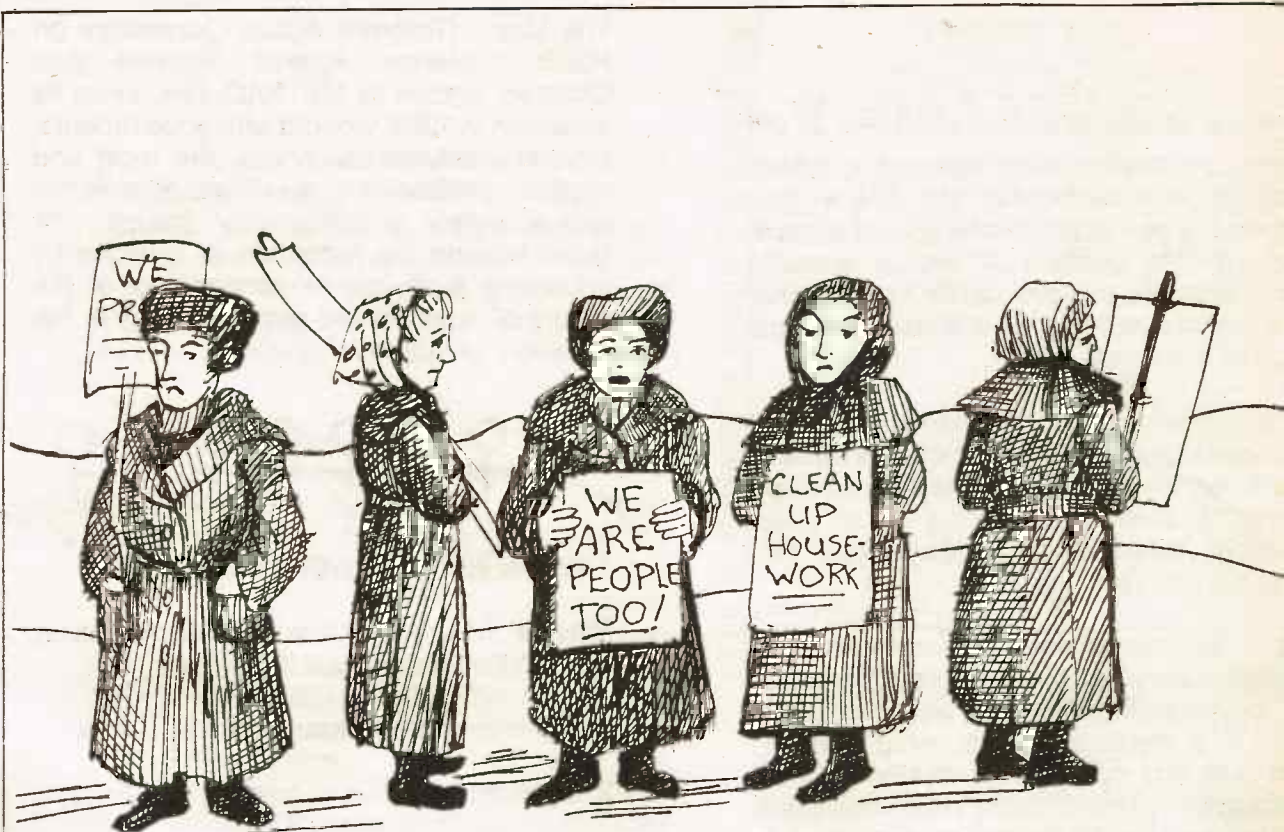 WE
PR
WE
ARE
PEOPLE
TOO!
CLEAN
UP
HOUSE-
WORK